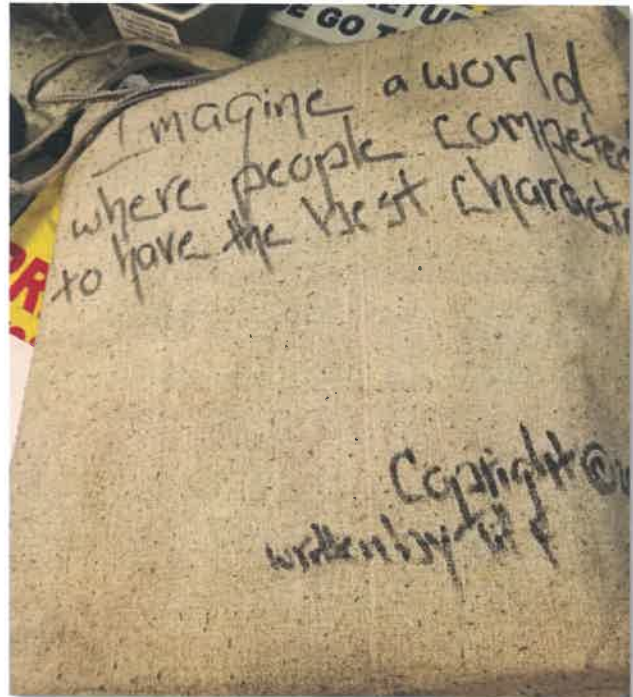 E GO T
Imagine a world
where people competed
to have the best characte
Copyright ©
written by